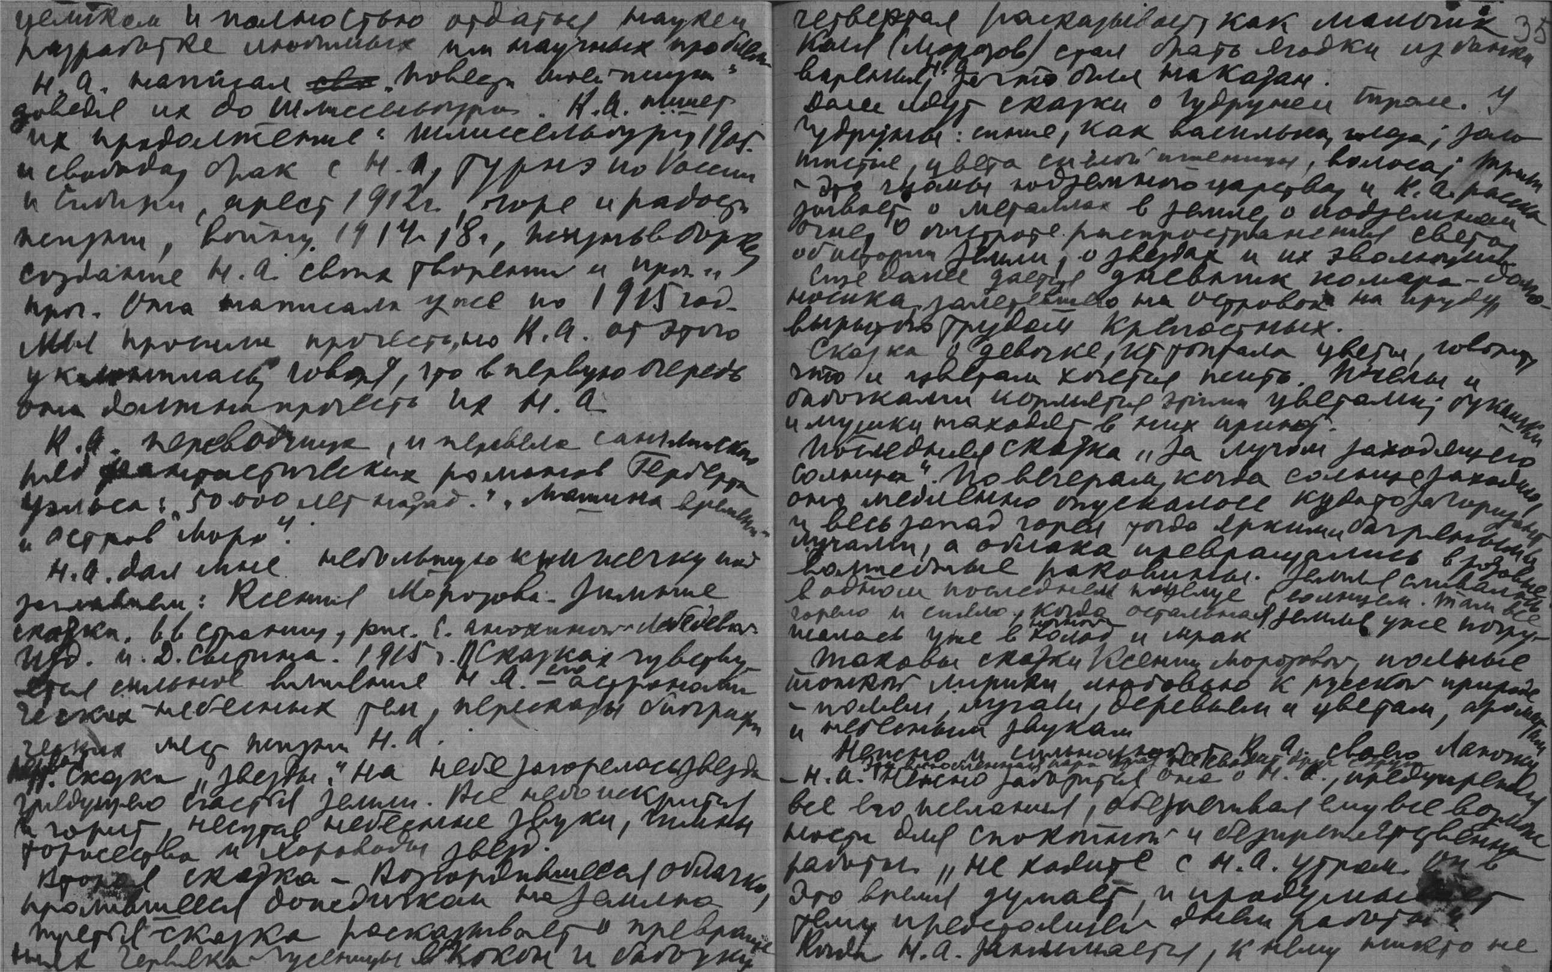 целиком и полностью отдаться науке и
разработке любимых им научных проблем
Н.А. написал повести моей жизни"
доведя их до Шлиссельбурга. К.А. пишет
их продолжение: Шлиссельбург, 1905г.
и свобода, брак с Н.А, турнэ по России
и Сибири, арест 1912г., горе и радость
жизни, войну 1914-18г, жизнь в Борке
создание Н.А. своих творений и проч. и
проч. Она написала уже по 1915 год.
Мы просили прочесть, но К.А. от этого
уклонилась, говоря, что в первую очередь
она должна прочесть их Н.А.
К.А. переводчица, и перевела с английского
ряд фантастических романов Герберта
Уэльса: „50 000 лет назад." „Машина времени"
и „Остров Моро".
Н.А. дал мне небольшую книжечку под
заглавием: Ксения Морозова - Зимние
сказки. 66 страниц, рис. С. Лебедевой
Изд. И.Д. Сытина. 1915г. В сказках чувству-
ется сильное влияние Н.А. его астрономи
ческих небесных тем, пересказы биографи
ческих мест жизни Н.А.
Первая сказка „Звезды". На небе загорелась звезда
грядущего счастья земли. Все небо искрится
и горит, несутся небесные звуки, гимны
торжества и хороводы звезд.
Вторая сказка – Возгордившееся облачко,
пролившееся дождичком на землю
Третья сказка рассказывает о превраще
ниях червяка-гусеницы в кокон и бабочку
35
четвертая рассказывает, как мальчик
Коля (Морозов) стал брать ягодки из банки
варенья, за что был наказан.
Далее идут сказки о Гудруне и Трале. У
Гудруны: синие, как васильки, глаза; золо
тистые, цвета спелой пшеницы, волосы;
- Это гномы подземного царства, и К.А. расска
зывает о металлах в земле, о подземном
огне, о быстроте распространения света,
об истории земли, о звездах и их эволюции
Еще далее дается дневник комара-долго-
носика, залетевшего на островок на пруду,
вырытого трудом крепостных.
Сказка о девочке, кт. топтала цветы, говорит,
что и цветам хочется жить. Пчелы и
бабочками кормятся этими цветами; букашки
и мушки находят в них приют.
Последняя сказка „За лучом заходящего
солнца". По вечерам, когда солнце заходило,
оно медленно опускалось куда-то за горизонт
и весь запад горел тогда яркими багряными
лучами, а облака превращались в розовые
волшебные раковины. Земля сливалась
в одном последнем поцелуе с солнцем. Там все
горело и сияло, когда остальная земля уже погру-
жалась уже в холод и мрак
Таковы сказки Ксении Морозовой, полные
тонкой лирики, любовью к русской природе
- полям, лугам, деревьям и цветам, ароматам
и небесным звукам
Нежно и сильно любит К.А. своего Ланочку
- Н.А. Нежно заботится она о Н.А., предупреждая
все его желания, обеспечивая ему все возмож
ности для спокойной и беспрепятственной
работы. „Не ходите с Н.А. утром. Он в
это время думает, и продумывает
тему предстоящей днем работы"
Когда Н.А. занимается, к нему никто не